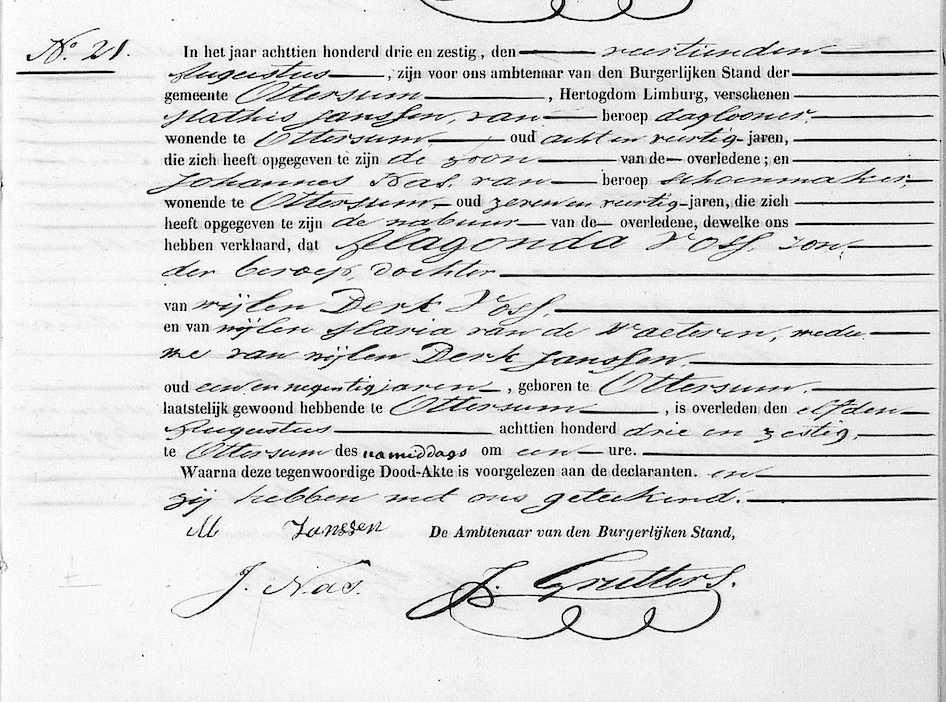 No. 21.
In het jaar achttien honderd drie en zestig, den veertienden
Augustus, zijn voor ons ambtenaar van den Burgerlijken Stand der
gemeente Ottersum, Hertogdom Limburg, verschenen
Mathis Janssen, van beroep daglooner,
wonende te Ottersum, oud acht en veertig jaren,
die zich heeft opgegeven te zijn de zoon van de overledene; en
Johannes Nas, van beroep schoenmaker,
wonende te Ottersum, oud zeven en veertig jaren, die zich
heeft opgegeven te zijn de nabuur van de overledene, dewelke ons
hebben verklaard, dat Aldegonda Voss, zon-
der beroep, dochter
van wijlen Derk Voss,
en van wijlen Maria van de Waeteren, wedu-
we van wijlen Derk Janssen,
oud een en negentig jaren, geboren te Ottersum,
laatstelijk gewoond hebbende te Ottersum, is overleden den elfden
Augustus achttien honderd drie en zestig,
te Ottersum des namiddags om een ure.
Waarna deze tegenwoordige Dood-Akte is voorgelezen aan de declaranten. en
zij hebben met ons geteekend.
M Janssen De Ambtenaar van den Burgerlijken Stand,
J. Nas. J. Grutters.